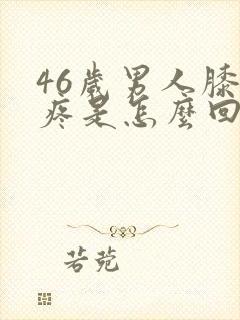 46歲男人膝
疼是怎麼回
若菀